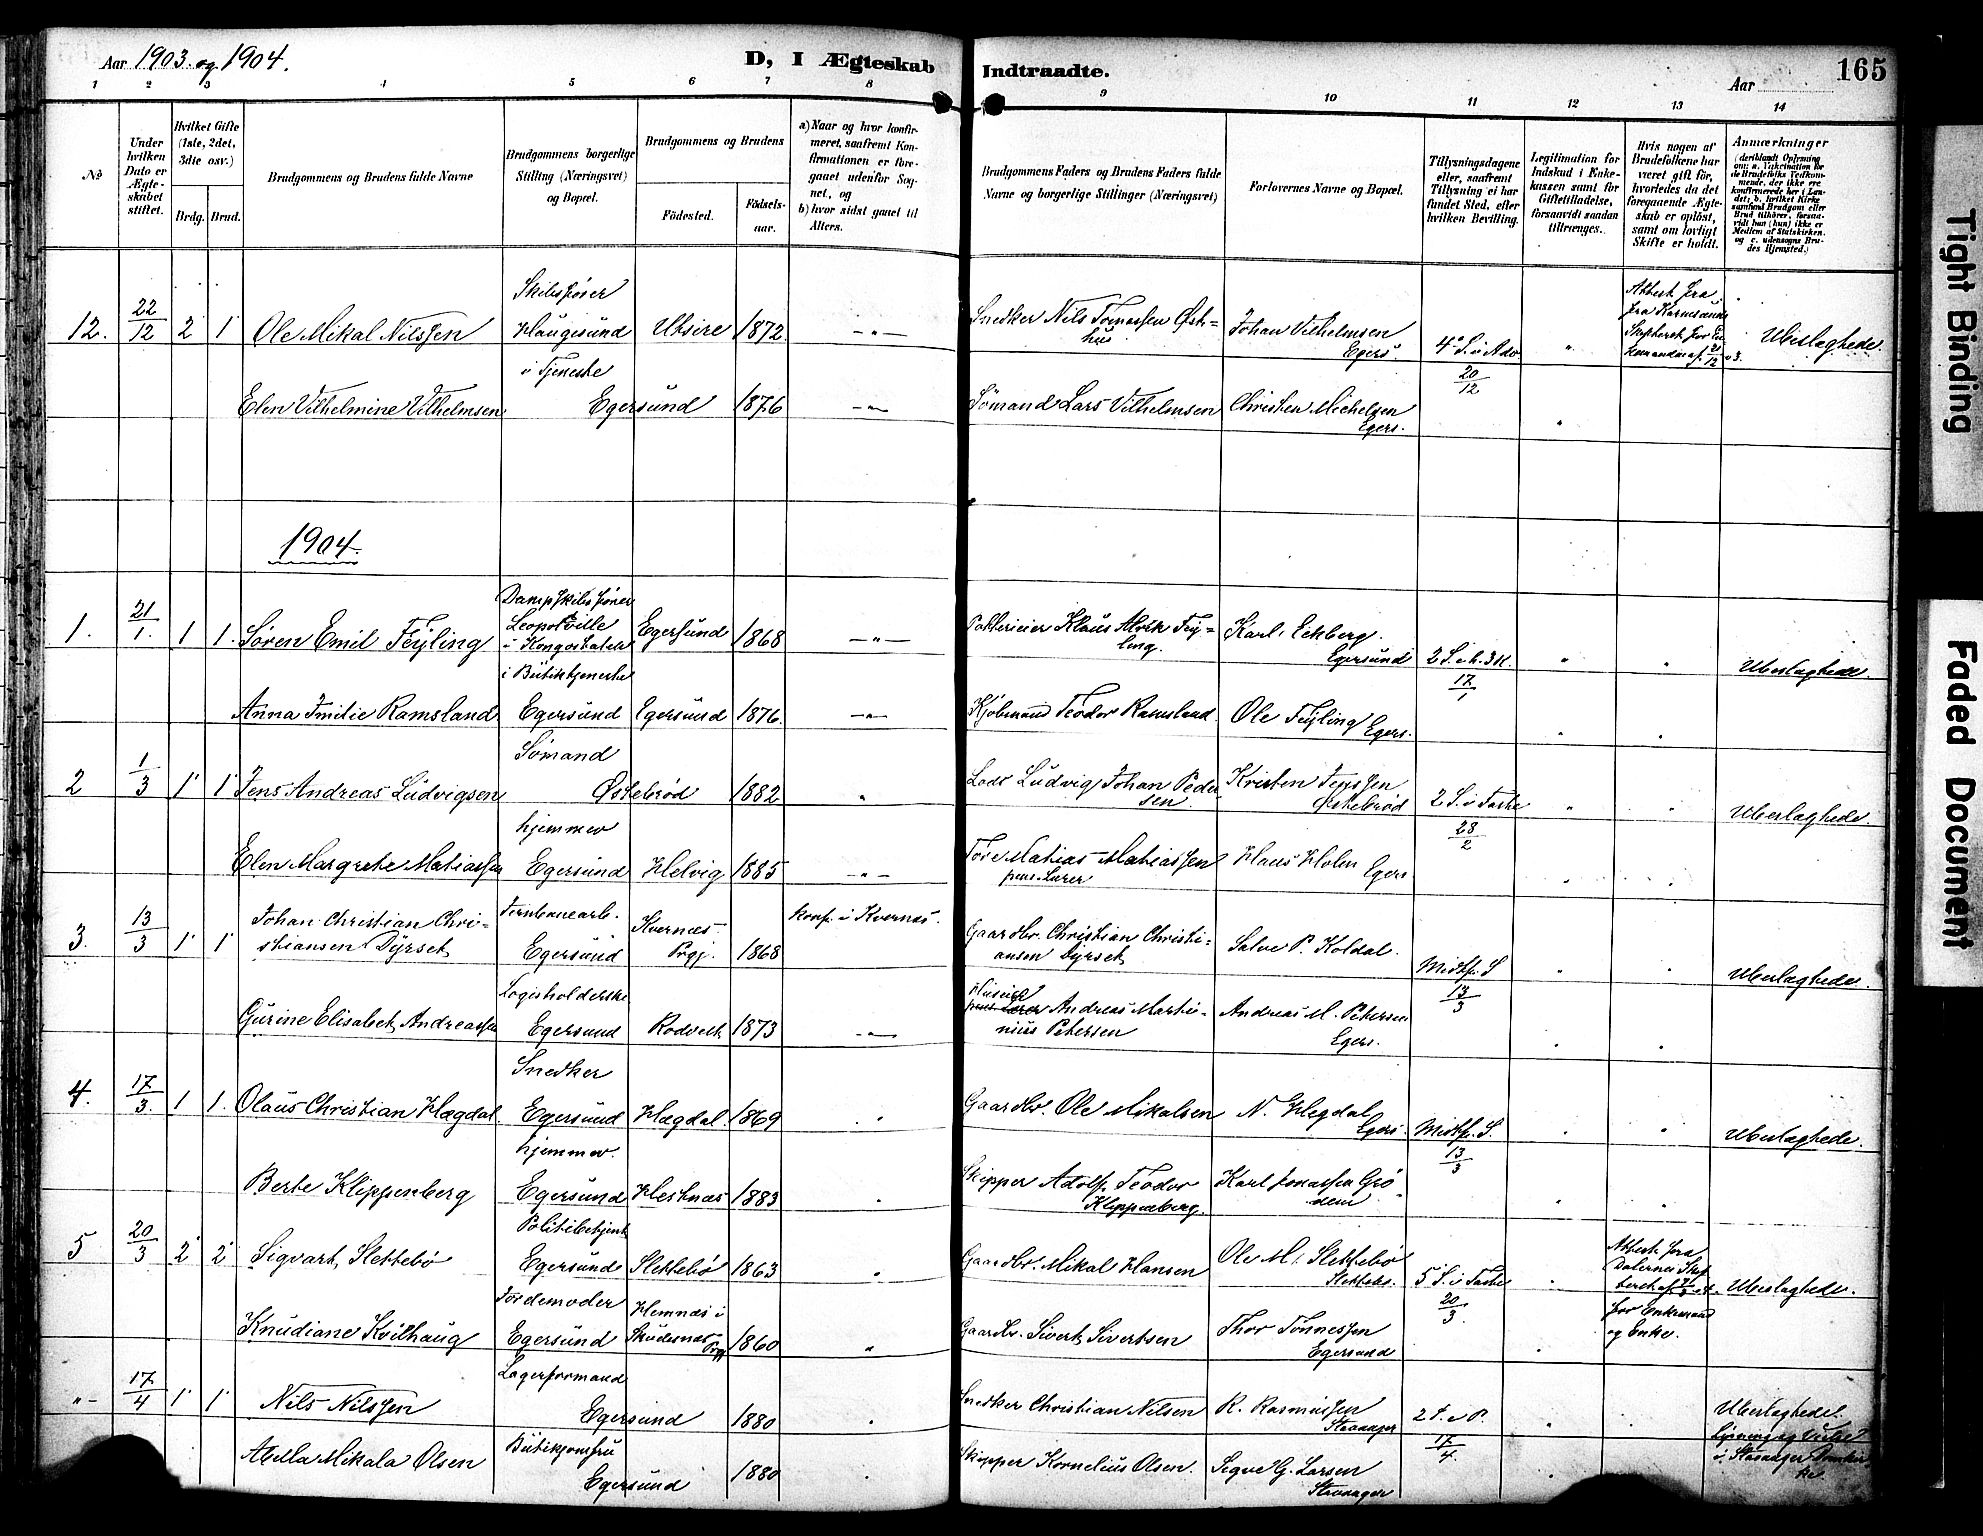 Aar 1903 og 1904.
D, I Ægteskab Indtraadte.
Aar
165
1 2 3 4 5 6 7 8 9 10 11 12 13 14
No
Under hvilken Dato er Ægteskabet stiftet.
Hvilket Gifte (1ste, 2det, 3die osv.)
Brdg. Brud.
Brudgommens og Brudens fulde Navne
Brudgommens borgerlige Stilling (Næringsvei) og Bopæl.
Brudgommens og Brudens
Födested.
Födselsaar.
a) Naar og hvor konfirmeret, saafremt Konfirmationen er foregaaet udenfor Sognet, og
b) hvor sidst gaaet til Alters.
Brudgommens Faders og Brudens Faders fulde Navne og borgerlige Stillinger (Næringsvei)
Forlovernes Navne og Bopæl.
Tillysningsdagene eller, saafremt Tillysning ei har fundet Sted, efter hvilken Bevilling.
Legitimation for Indskud i Enkekassen samt for Giftetilladelse, forsaavidt saadan tiltrænges.
Hvis nogen af Brudefolkene har været gift för, hvorledes da det foregaaende Ægteskab er oplöst, samt om lovligt Skifte er holdt.
Anmærkninger
12. 22/12 2 1 Ole Mikal Nilssen Skibsfører Haugesund Utsire 1872 -"- Snedker Nils Tomassen Østhus Johan Vilhelmsen Egers. 4° S. i Adv. 20/12 " Ubeslægtede.
Elen Vilhelmine Vilhelmsen i Tjeneste Egersund 1876 -"- Sømand Lars Vilhelmsen Christen Michelsen Egers. "
1904.
1. 21/1. 1 1. Søren Emil Feyling Dampskibsfører Leopotville i Kongostaten Egersund 1868 -"- Klaus Feyling Karl Eckberg. Egersund 17/1 " " Ubeslægtede.
Anna Emilie Ramsland i Butiktjeneste Egersund Egersund 1876. -"- Kjøbmand Teodor Ramsland Ole Feyling Egers. " "
2 1/3 1 1 Jens Andreas Ludvigsen Sømand Østebrød 1882 " Lods Ludvig Johan Pedersen Kristen Jenssen Østebrød 2 S. i Faste 28/2 " " Ubeslægtede.
Elen Margrete Matiassen hjemmev. Egersund Helvig 1885 -"- Tore Matias Matiassen pens. Lærer Klaus Holen Egers " "
3. 13/3 1 1 Johan Christian Christiansen Dyrset Jernbanearb. Egersund Kvernes Prgj. 1868 konf. i Kvernes. Gaardbr. Christian Christiansen Dyrset Salve P. Koldal. Midtf. S 13/3 " " Ubeslægtede.
Gurine Elisabet Andreassen Logisholderske Egersund Rodvelt 1873 -"- Huseier Andreas Martinius Petersen Andreas M. Petersen Egers. " "
4. 17/3. 1 1. Olaus Christian Hægdal Snedker Egersund Hægdal 1869 " Gaardbr. Ole Mikalsen N. Hegdal Egers. Midtf. S. 13/3 " " Ubeslægtede.
Berte Klippenberg hjemmev. Egersund Hestnes 1883 " Skipper Adolf Teodor Klippenberg. Karl Jonassen Grødem " "
5 20/3 2 2 Sigvart Slettebø Politibetjent Egersund Slettebø 1863 " Gaardbr. Mikal Hansen Ole M. Slettebø Slettebø. 5 S. i Faste 20/3. " Attest fra Dalernes for Enkemand og Enke. Ubeslægtede.
Knudiane Kvilhaug Jordemoder Egersund Hemnes i Skudesnes Prgj 1860 " Gaardbr. Sivert Sivertsen Thor Tønnessen Egersund "
-"- 17/4 1 1 Nils Nilssen Lagerformand Egersund 1880 " Snedker Christian Nilsen R. Rasmussen Stavanger 2 S. e. P. 17/4 " " Ubeslægtede. Lysning og Vielse i Stavanger Domkirke
Abella Mikala Olsen Butikjomfru Egersund 1880 " Skipper Kornelius Olsen. Segve G. Larsen Stavanger " "
Tight Binding
Faded Document